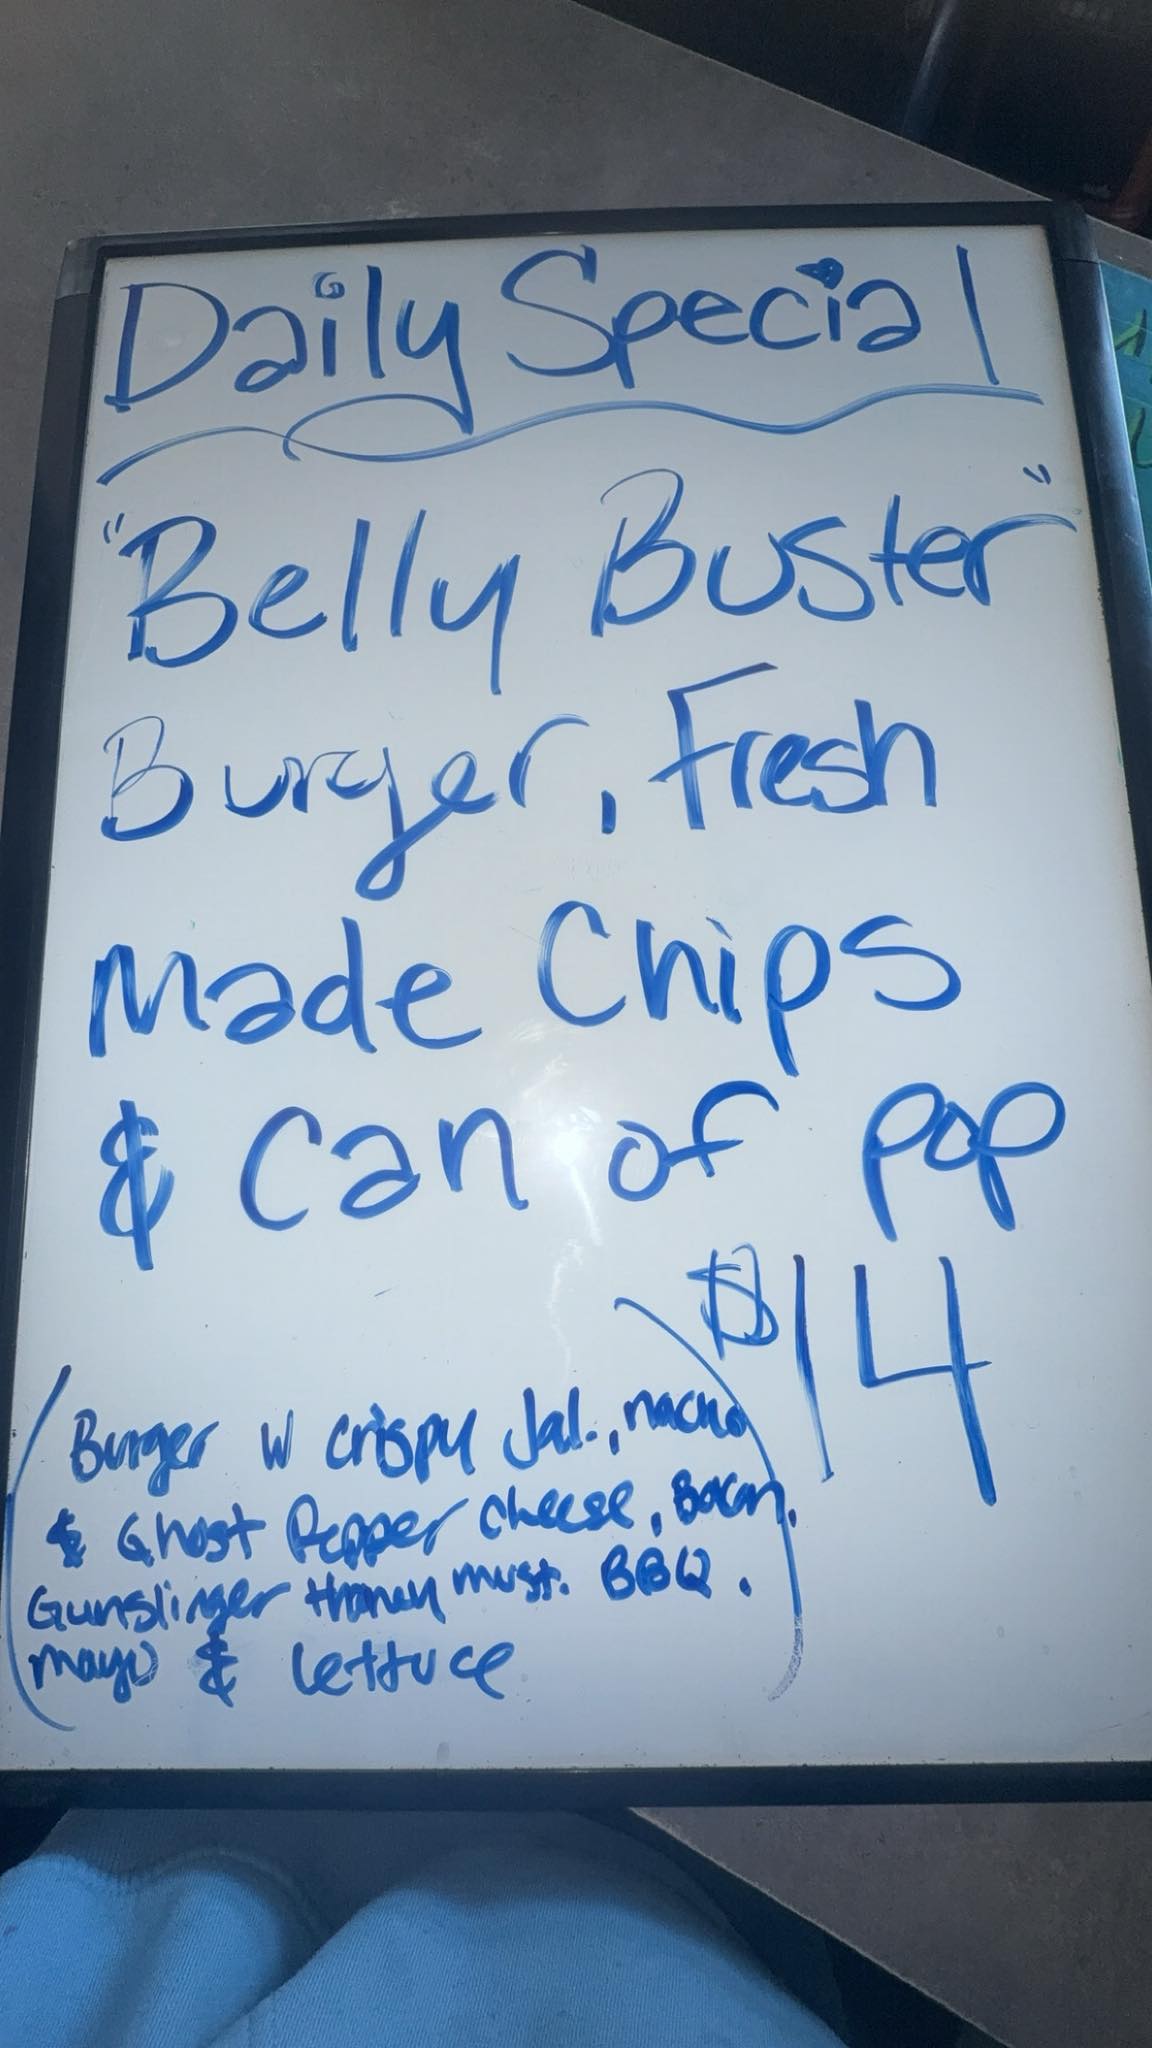 Daily Special
"Belly Buster"
Burger, Fresh
Made Chips
& Can of pop
$14
Burger w crispy Jal., nacho
& Ghost Pepper cheese, Bacon,
Gunslinger + honey must. BBQ.
mayo & lettuce